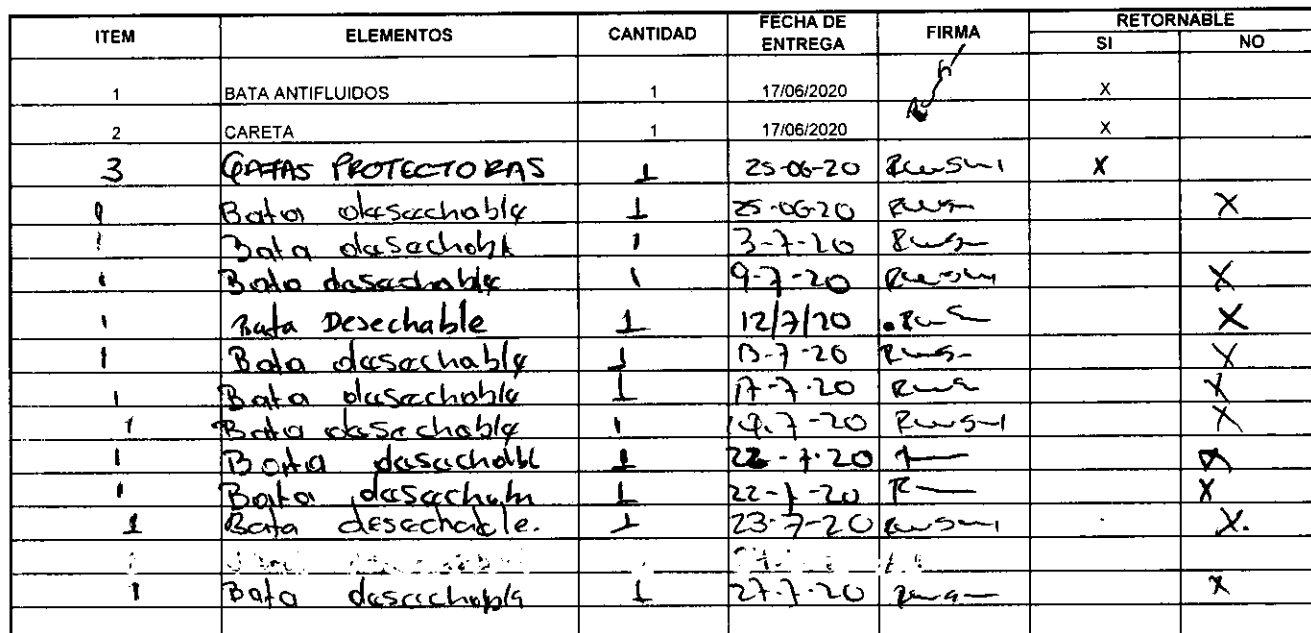 ITEM ELEMENTOS CANTIDAD FECHA DE ENTREGA FIRMA RETORNABLE
SI NO
1 BATA ANTIFLUIDOS 1 17/06/2020 X
2 CARETA 1 17/06/2020 X
3 GAFAS PROTECTORAS 1 25-06-20 X
1 Bata desechable 1 25-06-20 X
1 Bata desechable 1 3-7-20
1 Bata desechable 1 9-7-20 X
1 Bata Desechable 1 12/7/20 X
1 Bata desechable 1 13-7-20 X
1 Bata desechable 1 17-7-20 X
1 Bata desechable 1 19-7-20 X
1 Bata desechabl 1 22-7-20 X
1 Bata 1 22-7-20 X
1 Bata desechable. 1 23-7-20 X.
1 Bata desechable 1 27-7-20 X